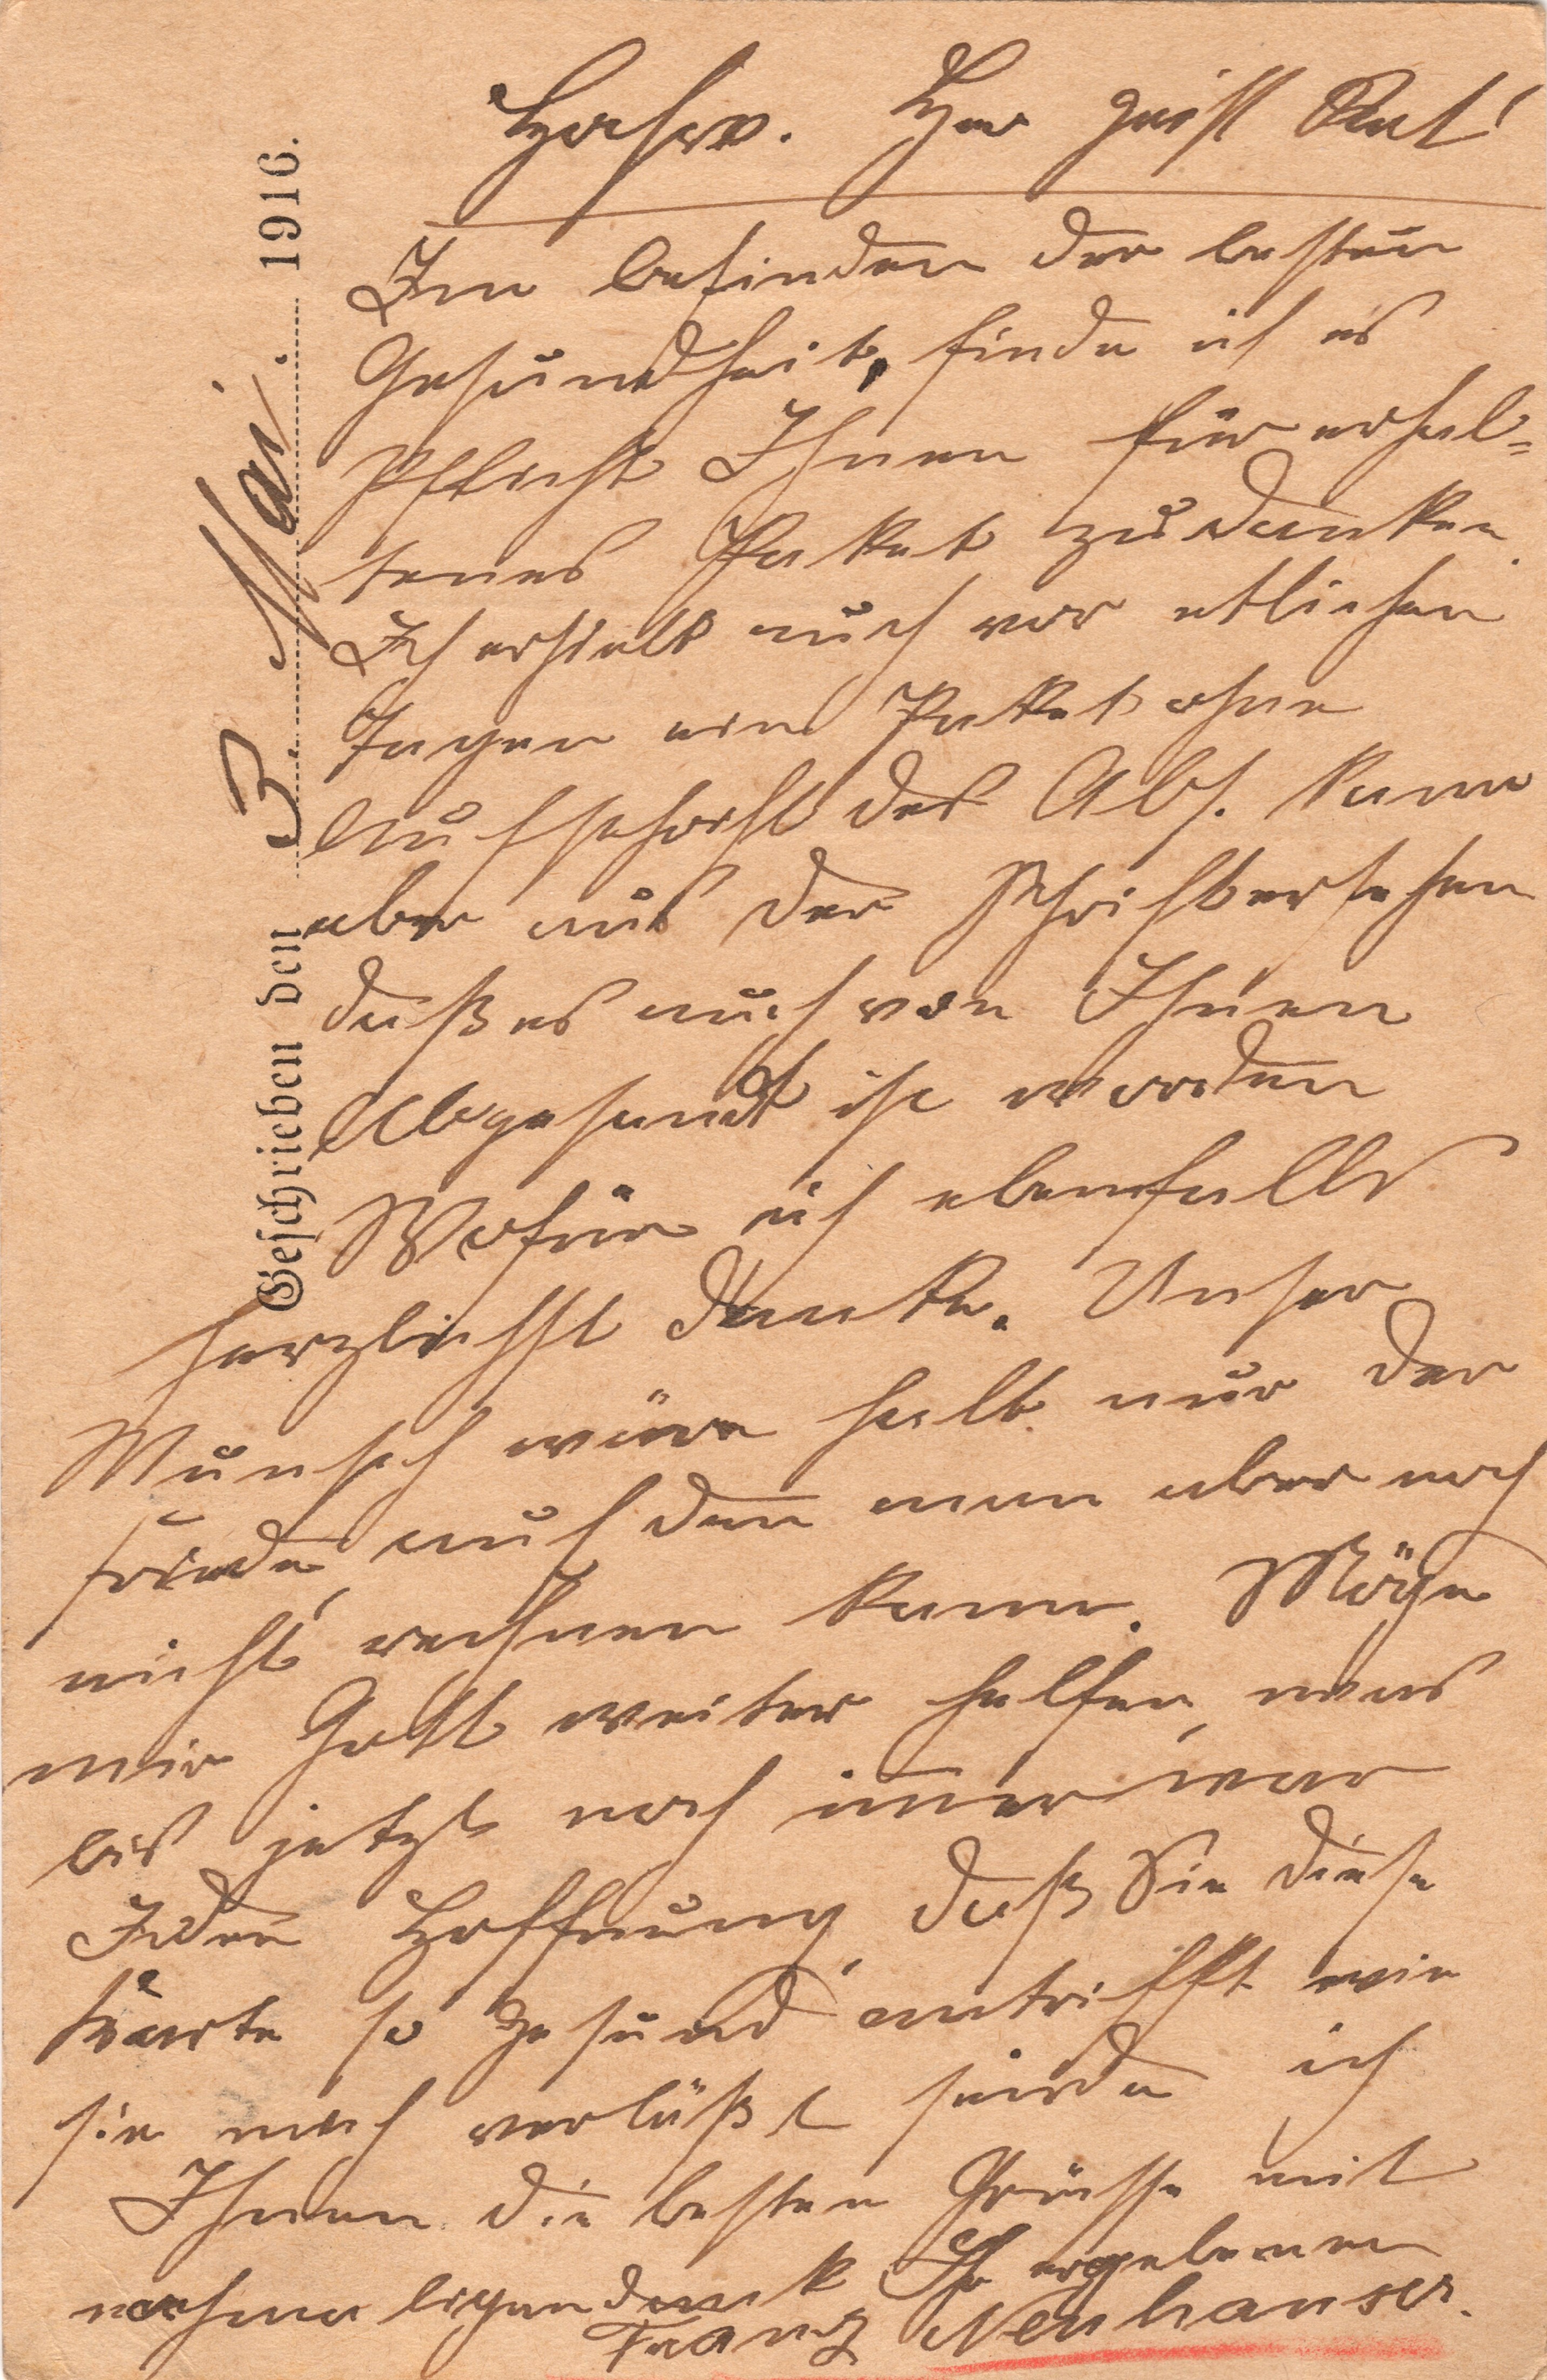 Geschrieben den 3. Mai. 1916.
Hochw. Herr Geistl Rat!
Im befinden der besten
Gesundheit, finde ich es
Pflicht Ihnen für erhal=
tenes Paket zu danken.
Ich erhielt auch vor etlichen
Tagen ein Paket ohne
Aufschrift des Abs. kann
aber aus der Schrift ersehen
daß es auch von Ihnen
Abgesandt ist worden
Wofür ich ebenfalls
herzlichst danke. Unser
Wunsch wäre halt nur der
friede, auf den man aber noch
nicht rechnen kann. Möge
mir Gott weiter helfen, was
bis jetzt noch im̅er war
In der Hoffnung, daß Sie diese
Karte so gesund antrifft wie
sie mich verläßt sende ich
Ihnen die besten Grüsse mit
nochmaligen dank Ihr ergebenen
Franz Neuhauser.